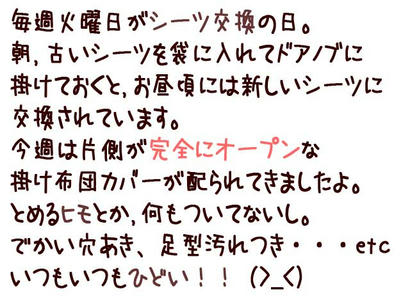 毎週火曜日がシーツ交換の日。
朝，古いシーツを袋に入れてドアノブに
掛けておくと，お昼頃には新しいシーツに
交換されています。
今週は片側が完全にオープンな
掛け布団カバーが配られてきましたよ。
とめるヒモとか，何もついてないし。
でかい穴あき、足型汚れつき・・・etc
いつもいつもひどい！！ (>_<)